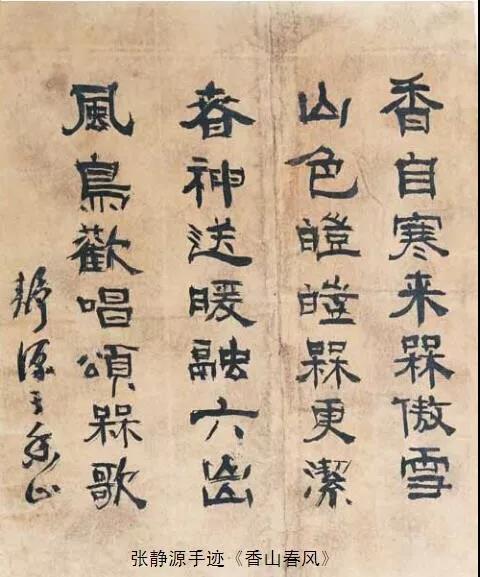 香自寒来槑傲雪
山色皚皚槑更潔
春神送暖融六出
風鳥歡唱頌槑歌
静源于香山
张静源手迹《香山春风》